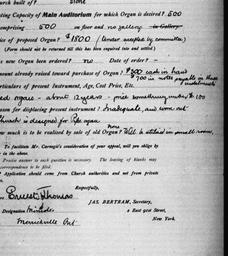 urch built of? Stone
ting Capacity of Main Auditorium for which Organ is desired? 500
omprising 500 on floor and no gallery
rice of proposed Organ? $1500 (Under
(Form should not be returned till this has been enquired into and settled.
new Organ been ordered? no Date of order?
ount already raised toward purchase of Organ? $800 cash in hand
$700 in notes payable in three
rticulars of present Instrument, Age, Cost Price, Etc. instalments
reed organ - about 12 years - price something under $100
eason for displacing present instrument? Inadequate and worn out
Church is designed for Pipe organ
ow much is to be realized by sale of old Organ? None. Will be utilized in small room,
To facilitate Mr. Carnegie's consideration of your appeal, will you oblige by
in the above.
Precise answer to each question is necessary. The leaving of blanks may
correspondence to be ignored.
Application should come from Church authorities and not from private
Respectfully,
Ernest Thomas JAS. BERTRAM, Secretary,
Designation Minister 2 East 91st Street,
Merrickville Ont New York.